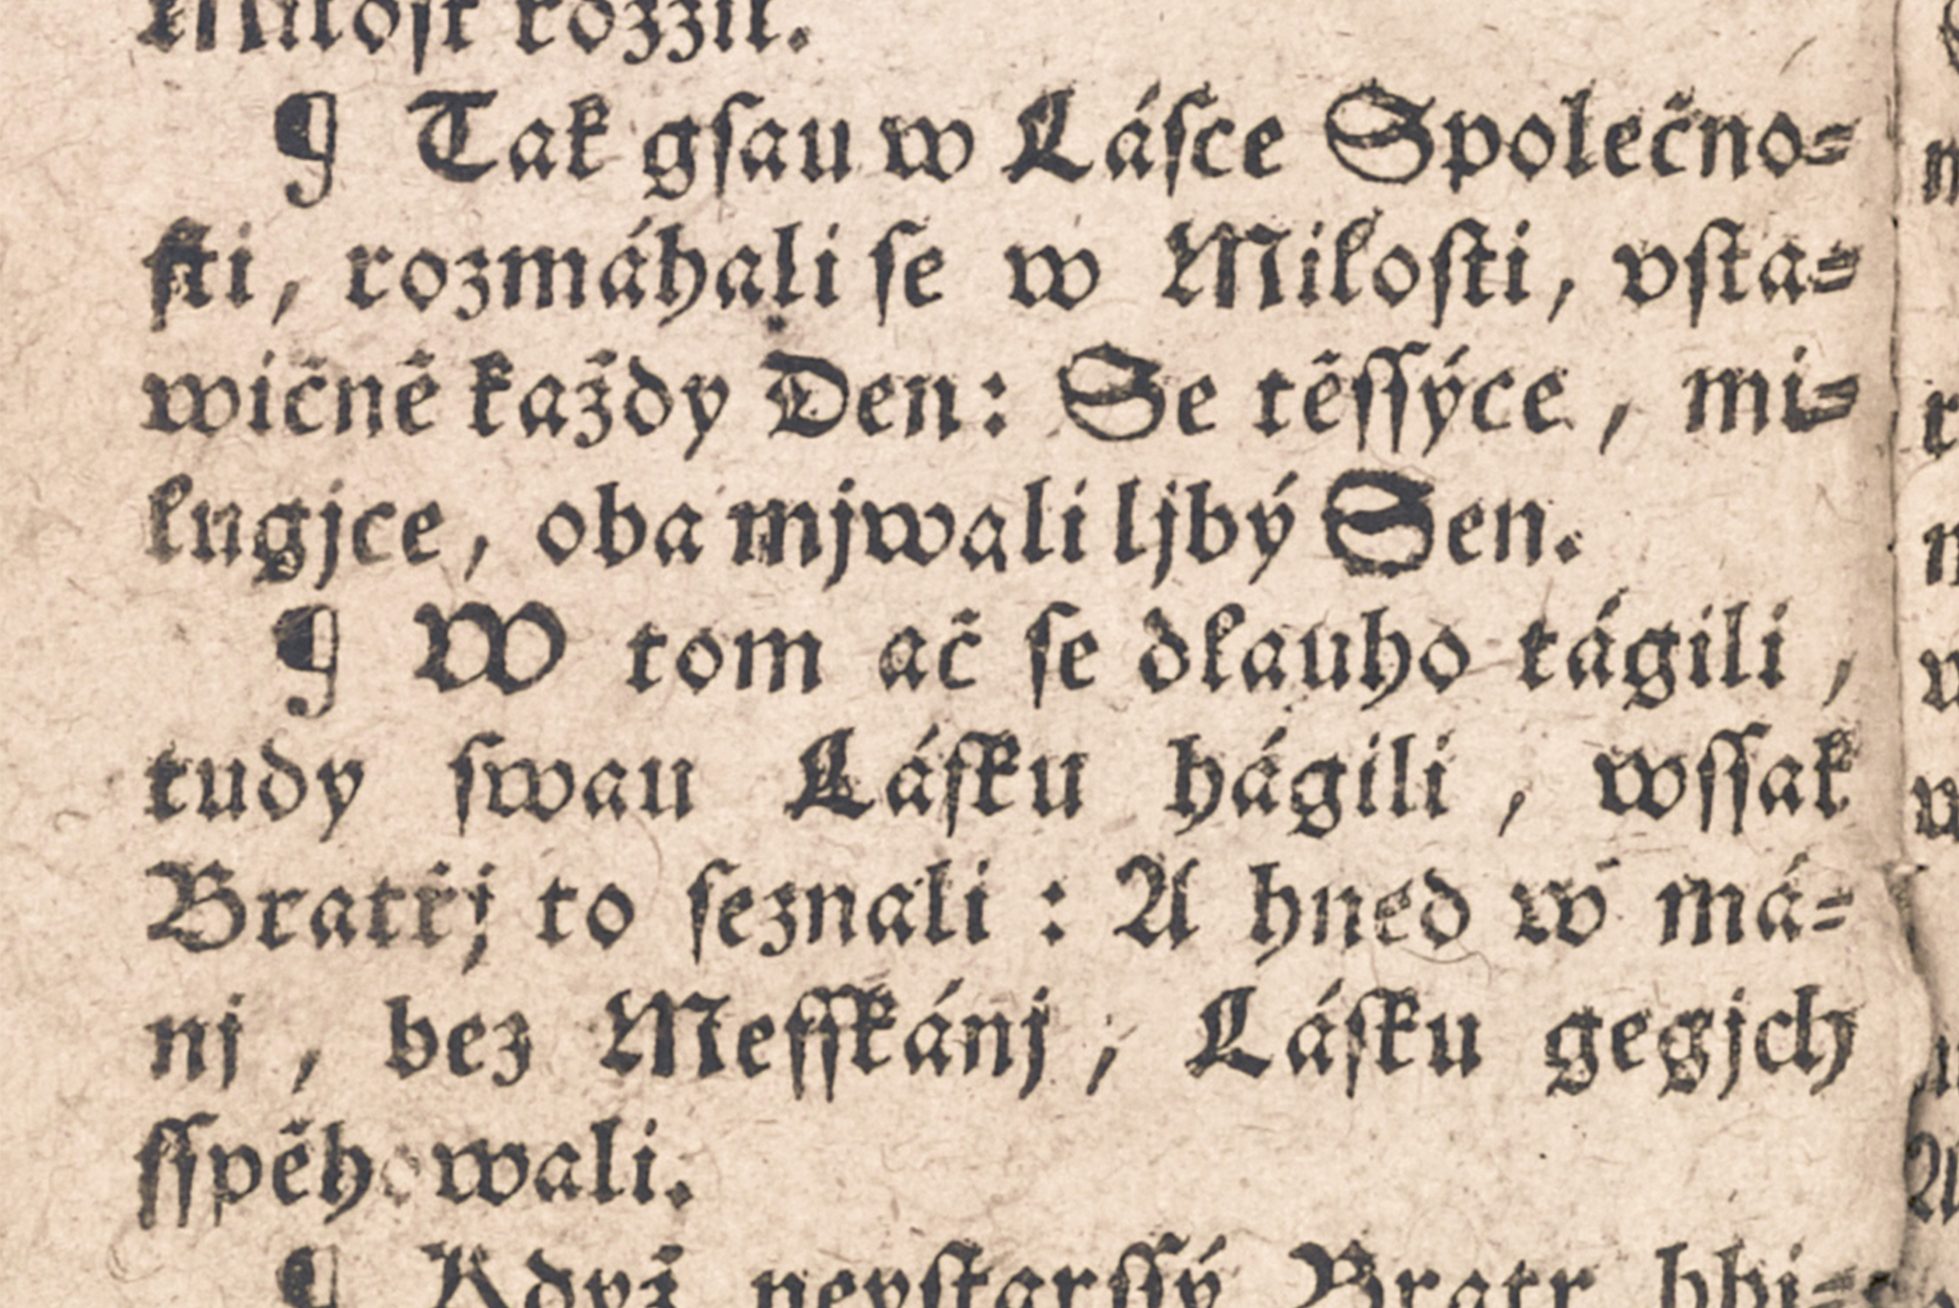 Miloſt rozžil.
¶ Tak gſau w Láſce Společno⸗
ſti, rozmáhali ſe w Miloſti, vſta⸗
wičně každy Den: Se těſſýce, mi⸗
lugjce, oba mjwali ljbý Sen.
¶ W tom ač ſe dlauho tágili,
tudy ſwau Láſku hágili, wſſak
Bratřj to ſeznali: A hned w má⸗
nj, bez Meſſkánj, Láſku gegjch
ſſpěhowali.
¶ Když neyſtarſſý Bratr